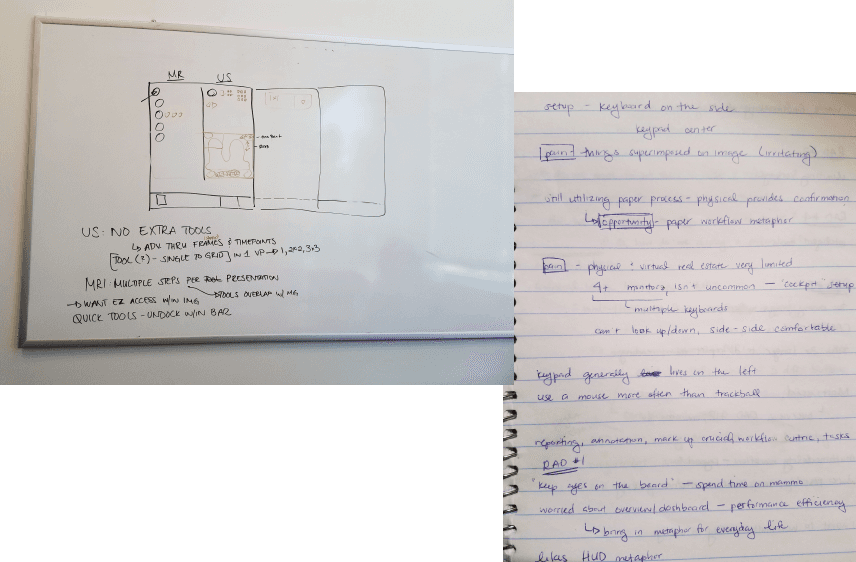 MR US
US: NO EXTRA TOOLS
↳ ADV THRU FRAMES & TIMEPOINTS
[TOOL (?) - SINGLE TO GRID] IN 1 VP → 1, 2x2, 3x3
MRI: MULTIPLE STEPS PER PRESENTATION
→ TOOLS OVERLAP w/ IMG
→ WANT EZ ACCESS W/IN IMG
QUICK TOOLS - UNDOCK W/IN BAR
setup - keyboard on the side
keypad center
pain - things superimposed on image (irritating)
still utilizing paper process - physical provides confirmation
↳ opportunity - paper workflow metaphor
pain - physical & virtual real estate very limited
4+ monitors isn't uncommon - "cockpit" setup
multiple keyboards
can't look up/down, side-side comfortable
keypad generally lives on the left
use a mouse more often than trackball
reporting, annotation, mark up crucial workflow centric tasks
RAD #1
"keep eyes on the board" - spend time on mammo
worried about overview/dashboard - performance efficiency
↳ bring in metaphor for everyday life
likes HUD metaphor